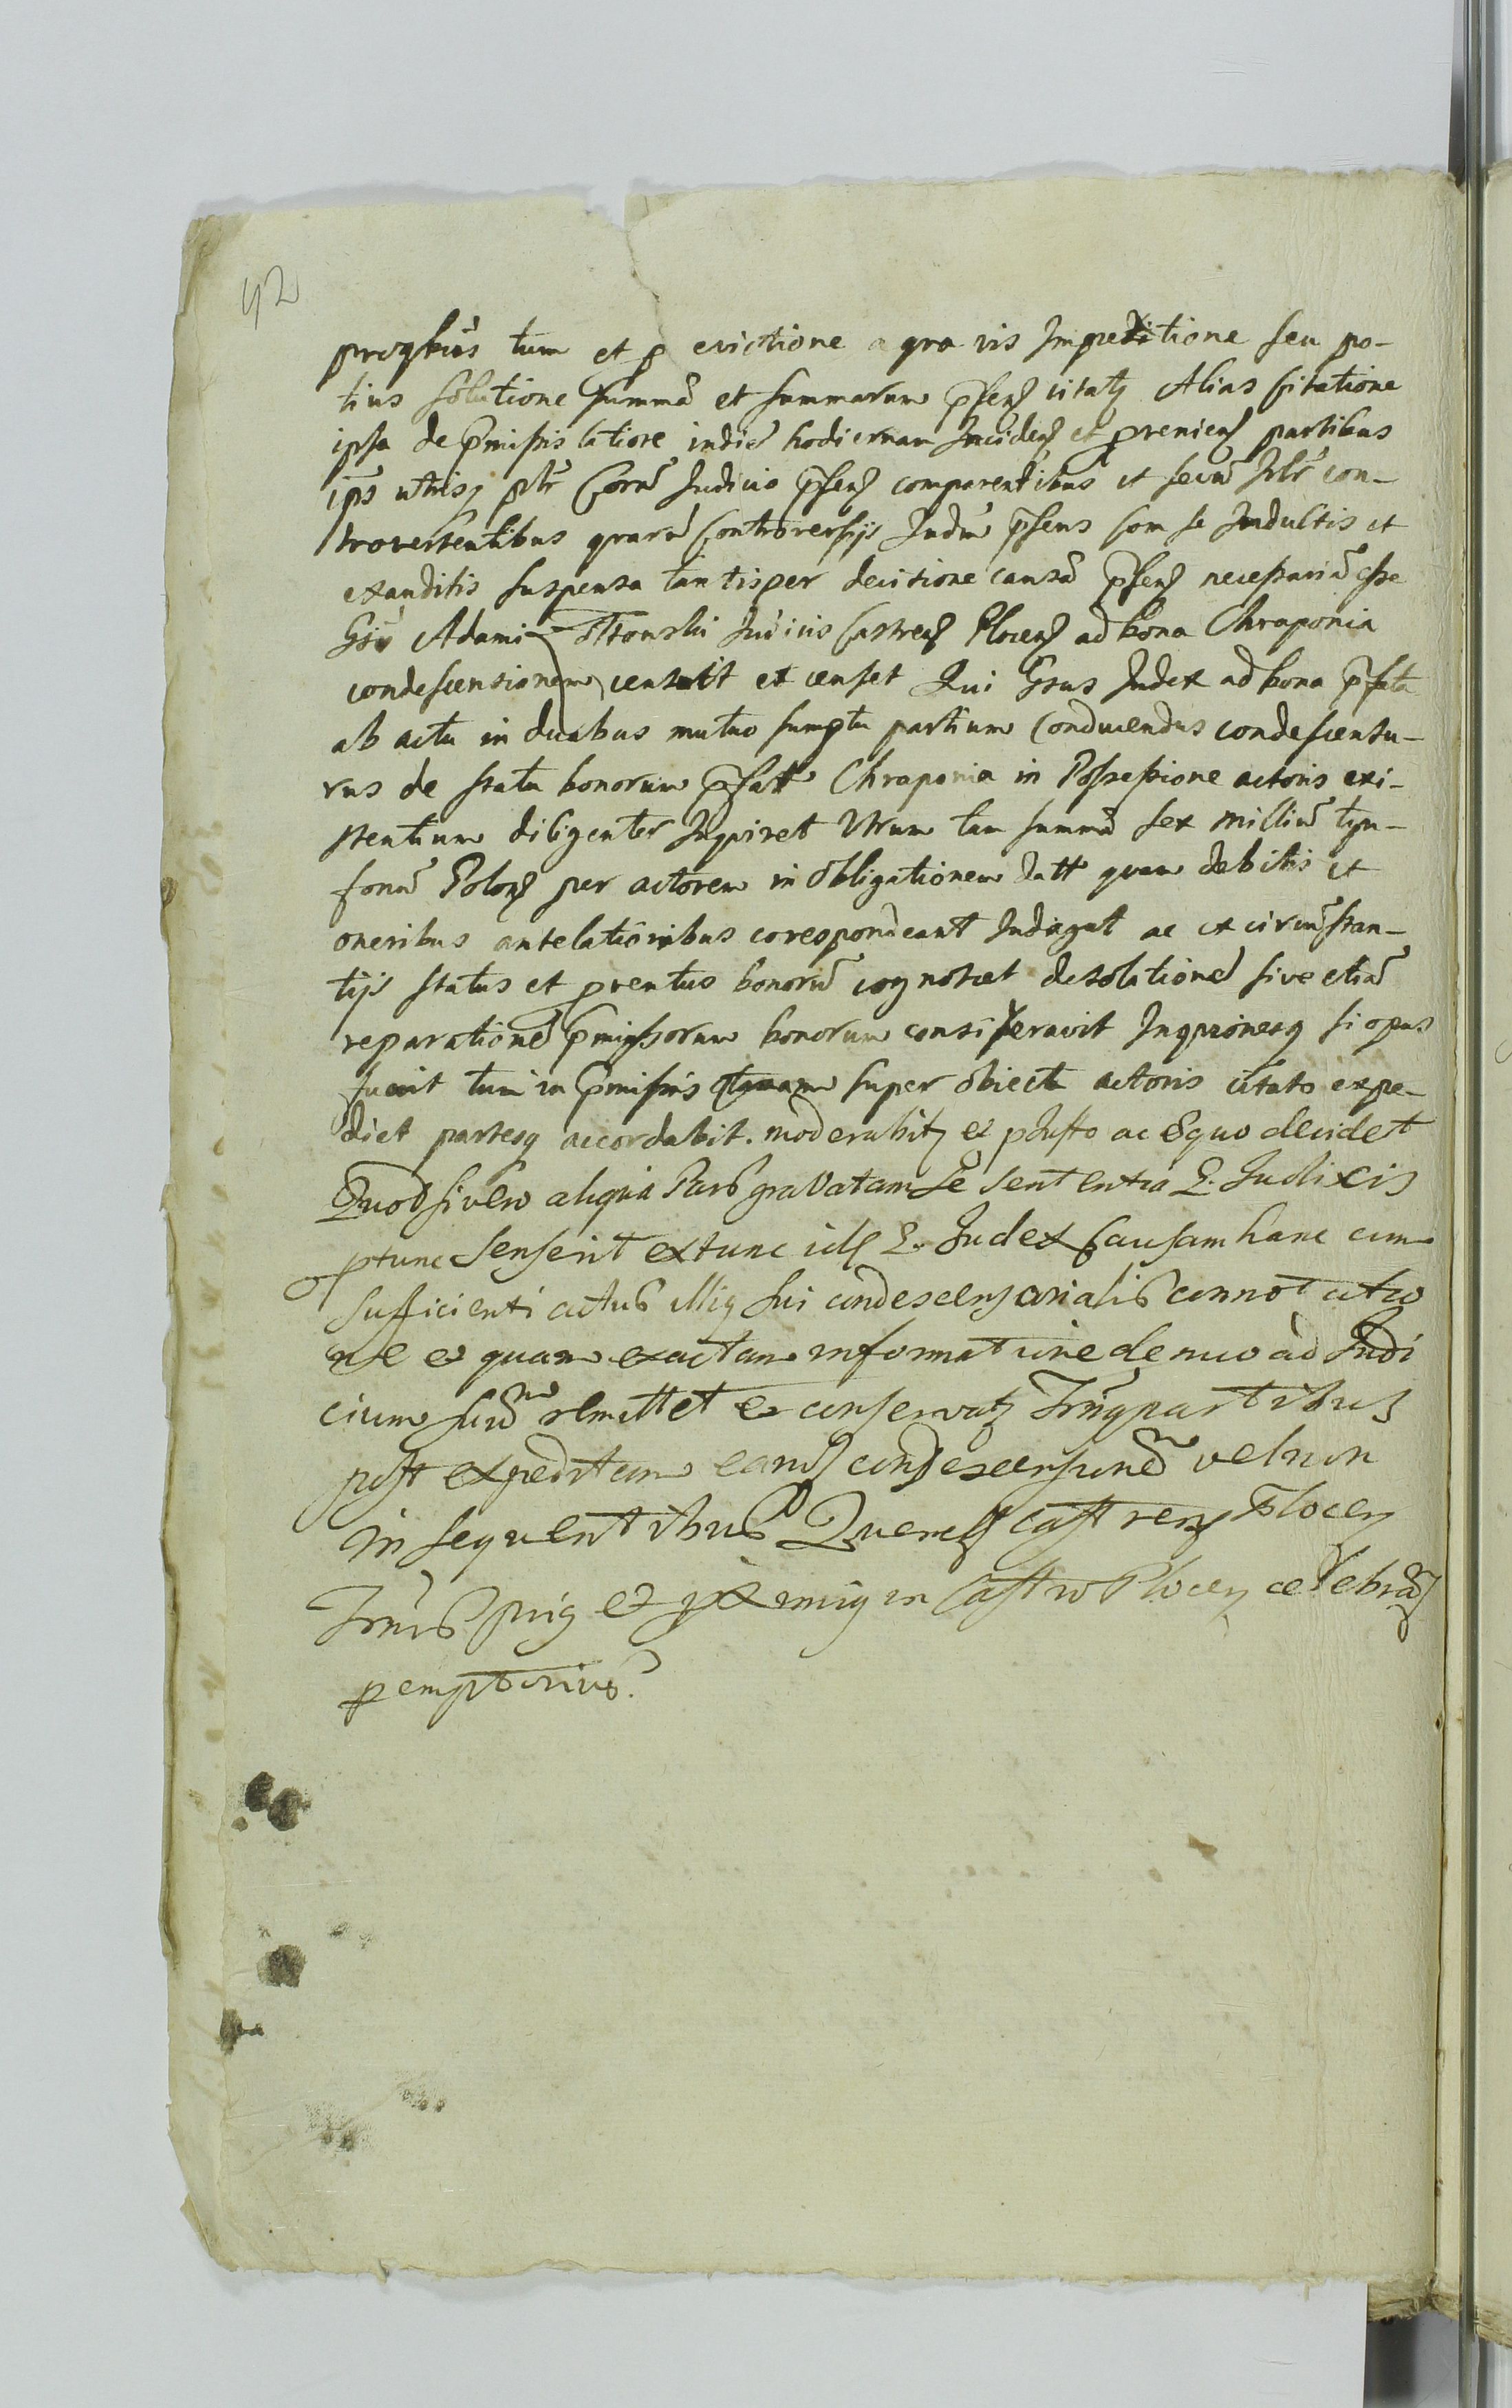 42
tum et p evictione a gra vis Impeditione seu po-
tius solutione summã et summarum p̃sens citatz Alias citatione
ipsa de p̃missis latiore indiẽ hodiernam Inciden et pvenien partibus
ip̃s utrisq ptr̃ Corã Judicio p̃sen comparentibus et secũ Jnlr̃ con-
trovertentibus quarũ Controversijs Judm̃ p̃sens coram se Indultis et
exauditis suspensa tantisper decisione causæ p̃sen necessariã esse
Gsi Adami Judicis Castren Plocen ad bona Chraponia
condescensionem censuit et censet Qui Gsus Judex ad bona p̃fata
ab actu in duabus mutuo sumptu partium Conducendus condescensu-
rus de statu bonorum p̃fatt Chraponia in Possessione actoris exi-
stentium diligenter Inquiret Utrum tam summã sex milliũ tyn-
fonũ Polon per actorem in obligationem datt quam debitis et
oneribus antelationibus corespondeant Indaget ac ex circũstan-
tijs status et pventus bonorũ cognoscet desolationẽ sive etiã
reparationẽ p̃missorum bonorum consideravit Inqsionesq si opus
fuerit tum in p̃missis quam super obiecta actoris citato expe-
diet partesq accordabit moderabitz ex p Justo ac Equo decidet
Quod si vero aliqua Pars gravatam se sententia E. Judicis
ptunc senserit extunc idẽ E. Judex Causam hanc cum
sufficienti actus illiq sui condescensorialis connotatio
ne et quam exactam informatione denuo ad Judi
cium suũ remittet et conservatz Trm̃ partibus
post expeditam eand condescensionẽ vel non
in sequentibus Querel castren Plocen
Trmis et pximiq in Castro Plocen celebrã
pemptorius.